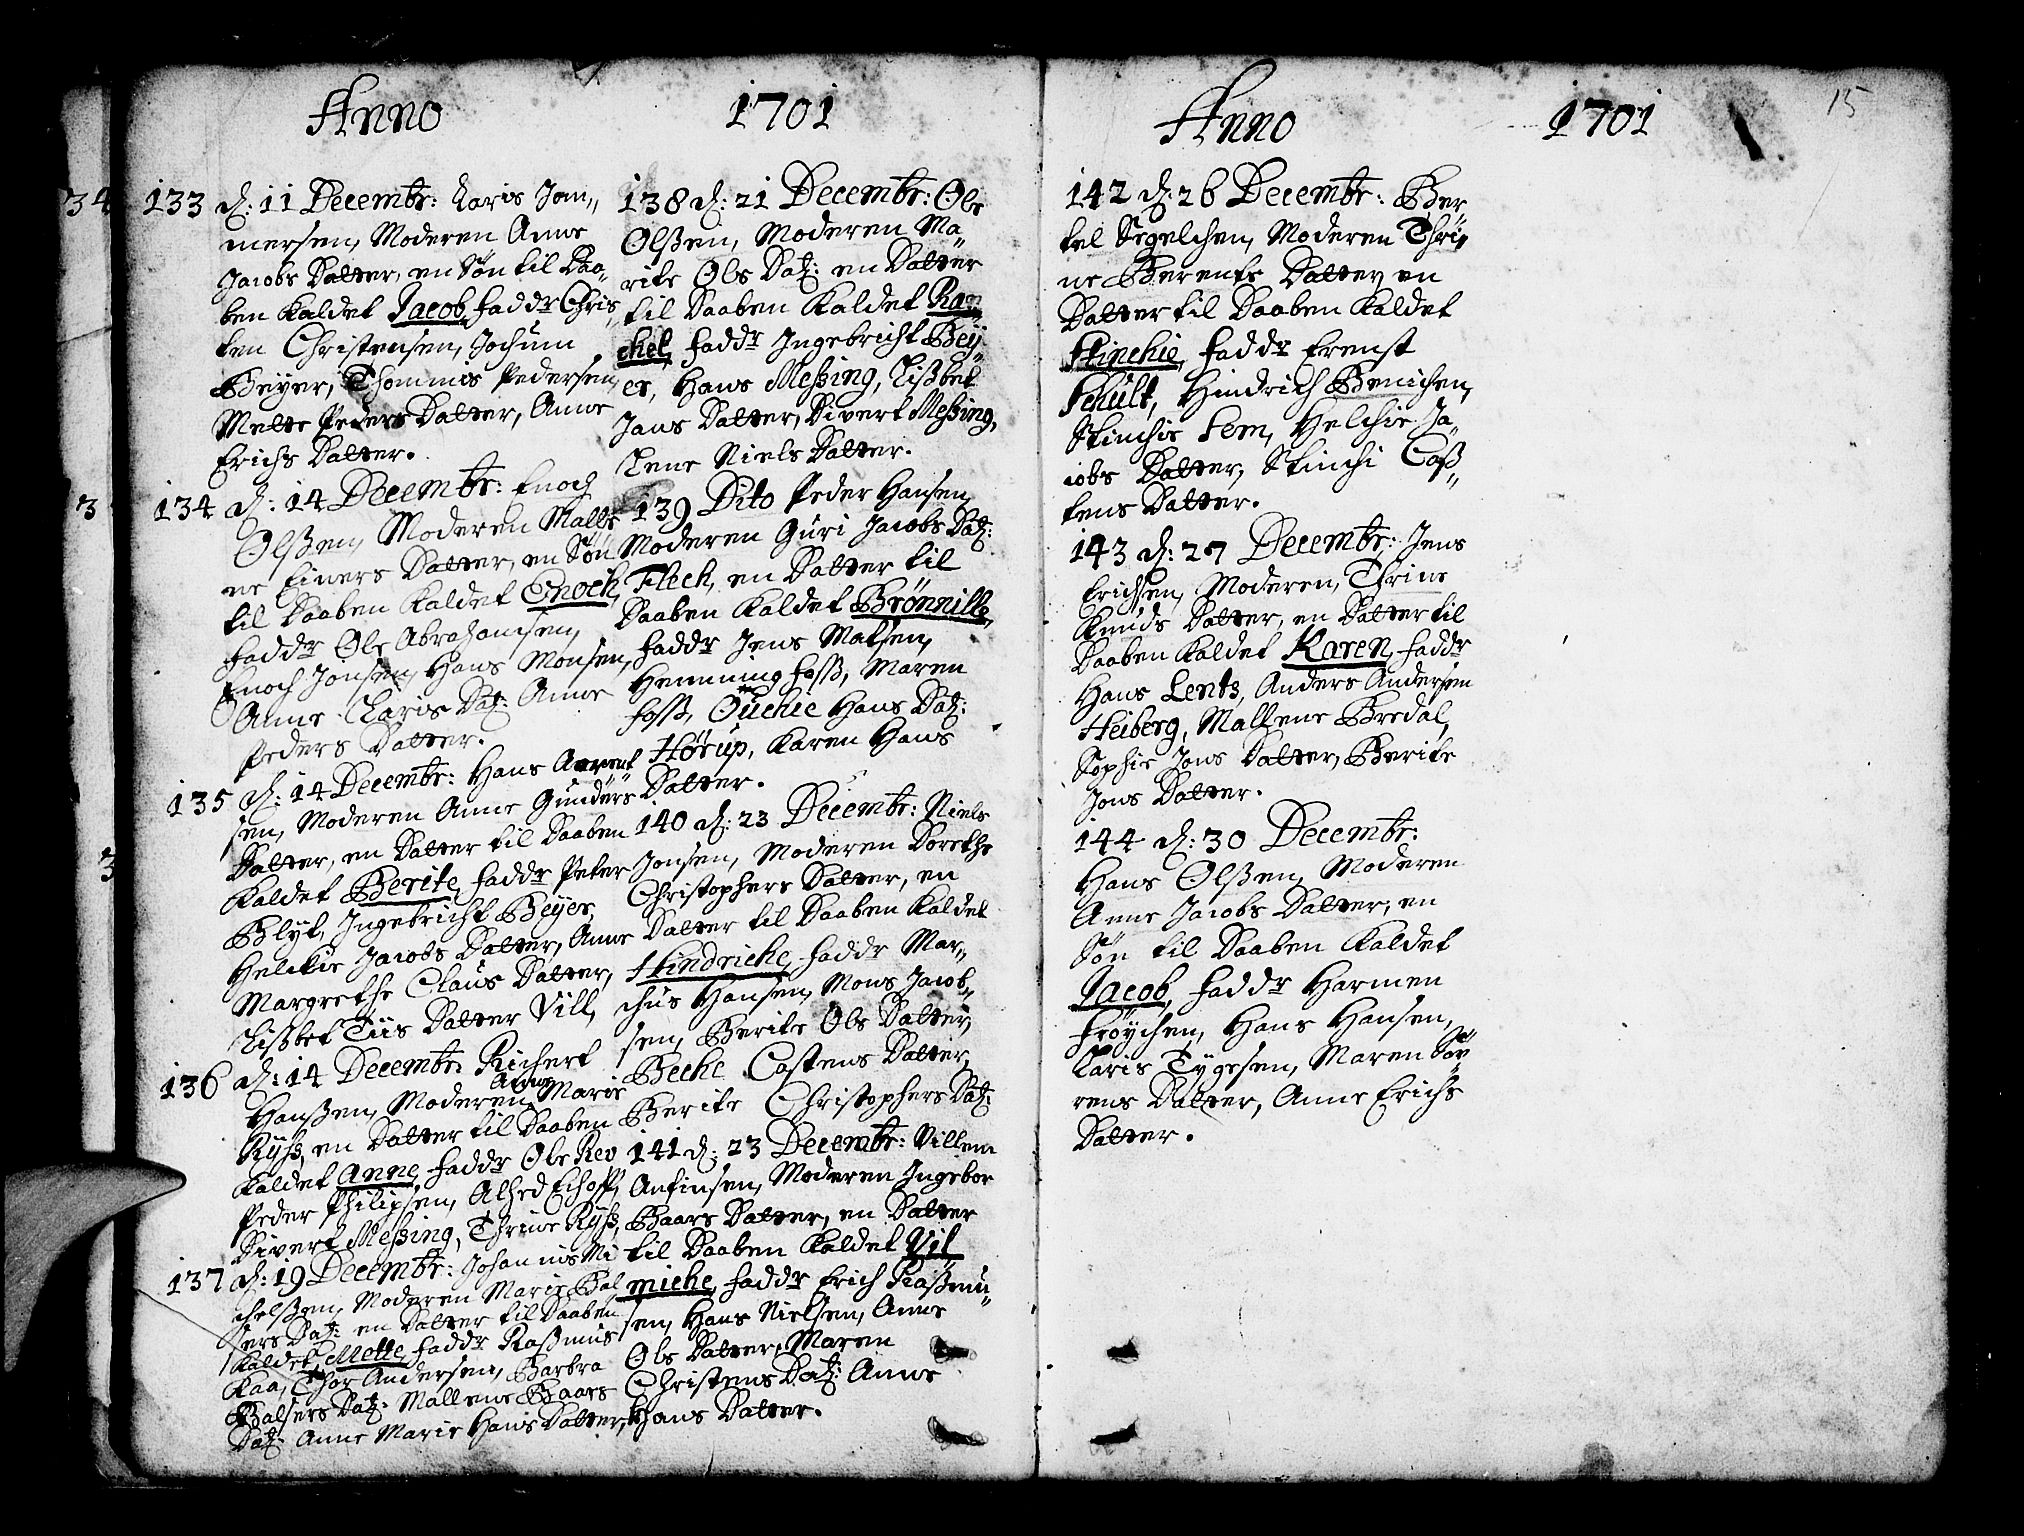 Anno 1701
133 d: 11 Decembr: Laris Jom„
mersen, Moderen Anne
Jacobs Datter, en Søn til Daa„
ben kaldet Jacob, faddr Chris„
ten Christensen, Jochum
Beijer, Thommis Pedersen,
Mette Peders Datter, Anne
Erichs Datter.
134 d: 14 Decembr: Enoch
Olßen, Moderen Malle„
ne Einers Datter, en Søn
til Daaben kaldet Enoch,
faddr Ole Abrahamsen,
Enoch Jonsen, Hans Monsen,
Anne Laris Dat: Anne
Peders Datter.
135 d: 14 Decembr: Hans Arent
sen, Moderen Anne Gunders
Datter, en Datter til Daaben
kaldet Berite, faddr Peter
Blyt, Ingebricht Beyer,
Helekie Jacobs Datter, Anne
Margrethe Claus Datter,
Lißbet Tiis Datter Vill,
136 d: 14 Decembr: Richert
Hanßen, Moderen Anne Marie
Ryß, en Datter til Daaben
kaldet Anne, faddr Ole Rev
Peder Philipsen, Alhed Echoff,
Divert Meßing, Thrine Ryß,
137 d: 19 Decembr: Johannis Mi
chelßen, Moderen Marie Bal
sers Dat: en Datter til Daaben
kaldet Mette, faddr Raßmus
Kaa, Thor Andersen, Barbra
Balsers Dat: Mallene Baars
Dat: Anne Marie Hans Datter,
138 d: 21 Decembr: Ole
Olßen, Moderen Ma„
rite Ols Dat: en Datter
til Daaben kaldet Ra„
chel, faddr Ingebricht Bey
er, Hans Meßing, Lißbet
Jans Datter, Divert Meßing,
Lene Niels Datter.
139 Dito Peder Hansen,
Moderen Guri Jacobs Dat:
Flech, en Datter til
Daaben kaldet Brønnille,
faddr Jens Matsen,
Henning foss, Maren
foss, Ouchie Hans Dat:
Hørup, Karen Hans
Datter.
140 d: 23 Decembr: Niels
Jonsen, Moderen Dorethe
Christophers Datter, en
Datter til Daaben kaldet
Hindriche, faddr Mar„
chus Hansen, Mons Jacob„
sen, Berite Ols Datter,
Beche Costens Datter,
Berite Christophers Dat:
141 d: 23 Decembr: Villem
Anfinsen, Moderen Ingebor
Baars Datter, en Datter
til Daaben kaldet Vil
miche, faddr Erich Raßmu„
sen, Hans Nielsen, Anne
Ols Datter, Maren
Christens Dat: Anne
Hans Datter.
15
Anno 1701
142 d: 26 Decembr: Ber„
tel Segelchen, Moderen Thri„
ne Berents Datter, en
Datter til Daaben kaldet
Stinchie, faddr Ernst
Schult, Hindrich Benichen,
Stinchie Fem, Helchie Ja„
cobs Datter, Stinchi Caß„
tens Datter.
143 d: 27 Decembr: Jens
Erichsen, Moderen, Thrine
Knuds Datter, en Datter til
Daaben kaldet Karen, faddr
Hans Lents, Anders Andersen
Heiberg, Mallene Bredal,
Sophie Jons Datter, Berite
Jons Datter.
144 d: 30 Decembr:
Hans Olßen, Moderen
Anne Jacobs Datter, en
Søn til Daaben kaldet
Jacob, faddr Harmen
Frøychen, Hans Hansen,
Laris Tygesen, Maren Sø„
rens Datter, Anne Erichs
Datter.